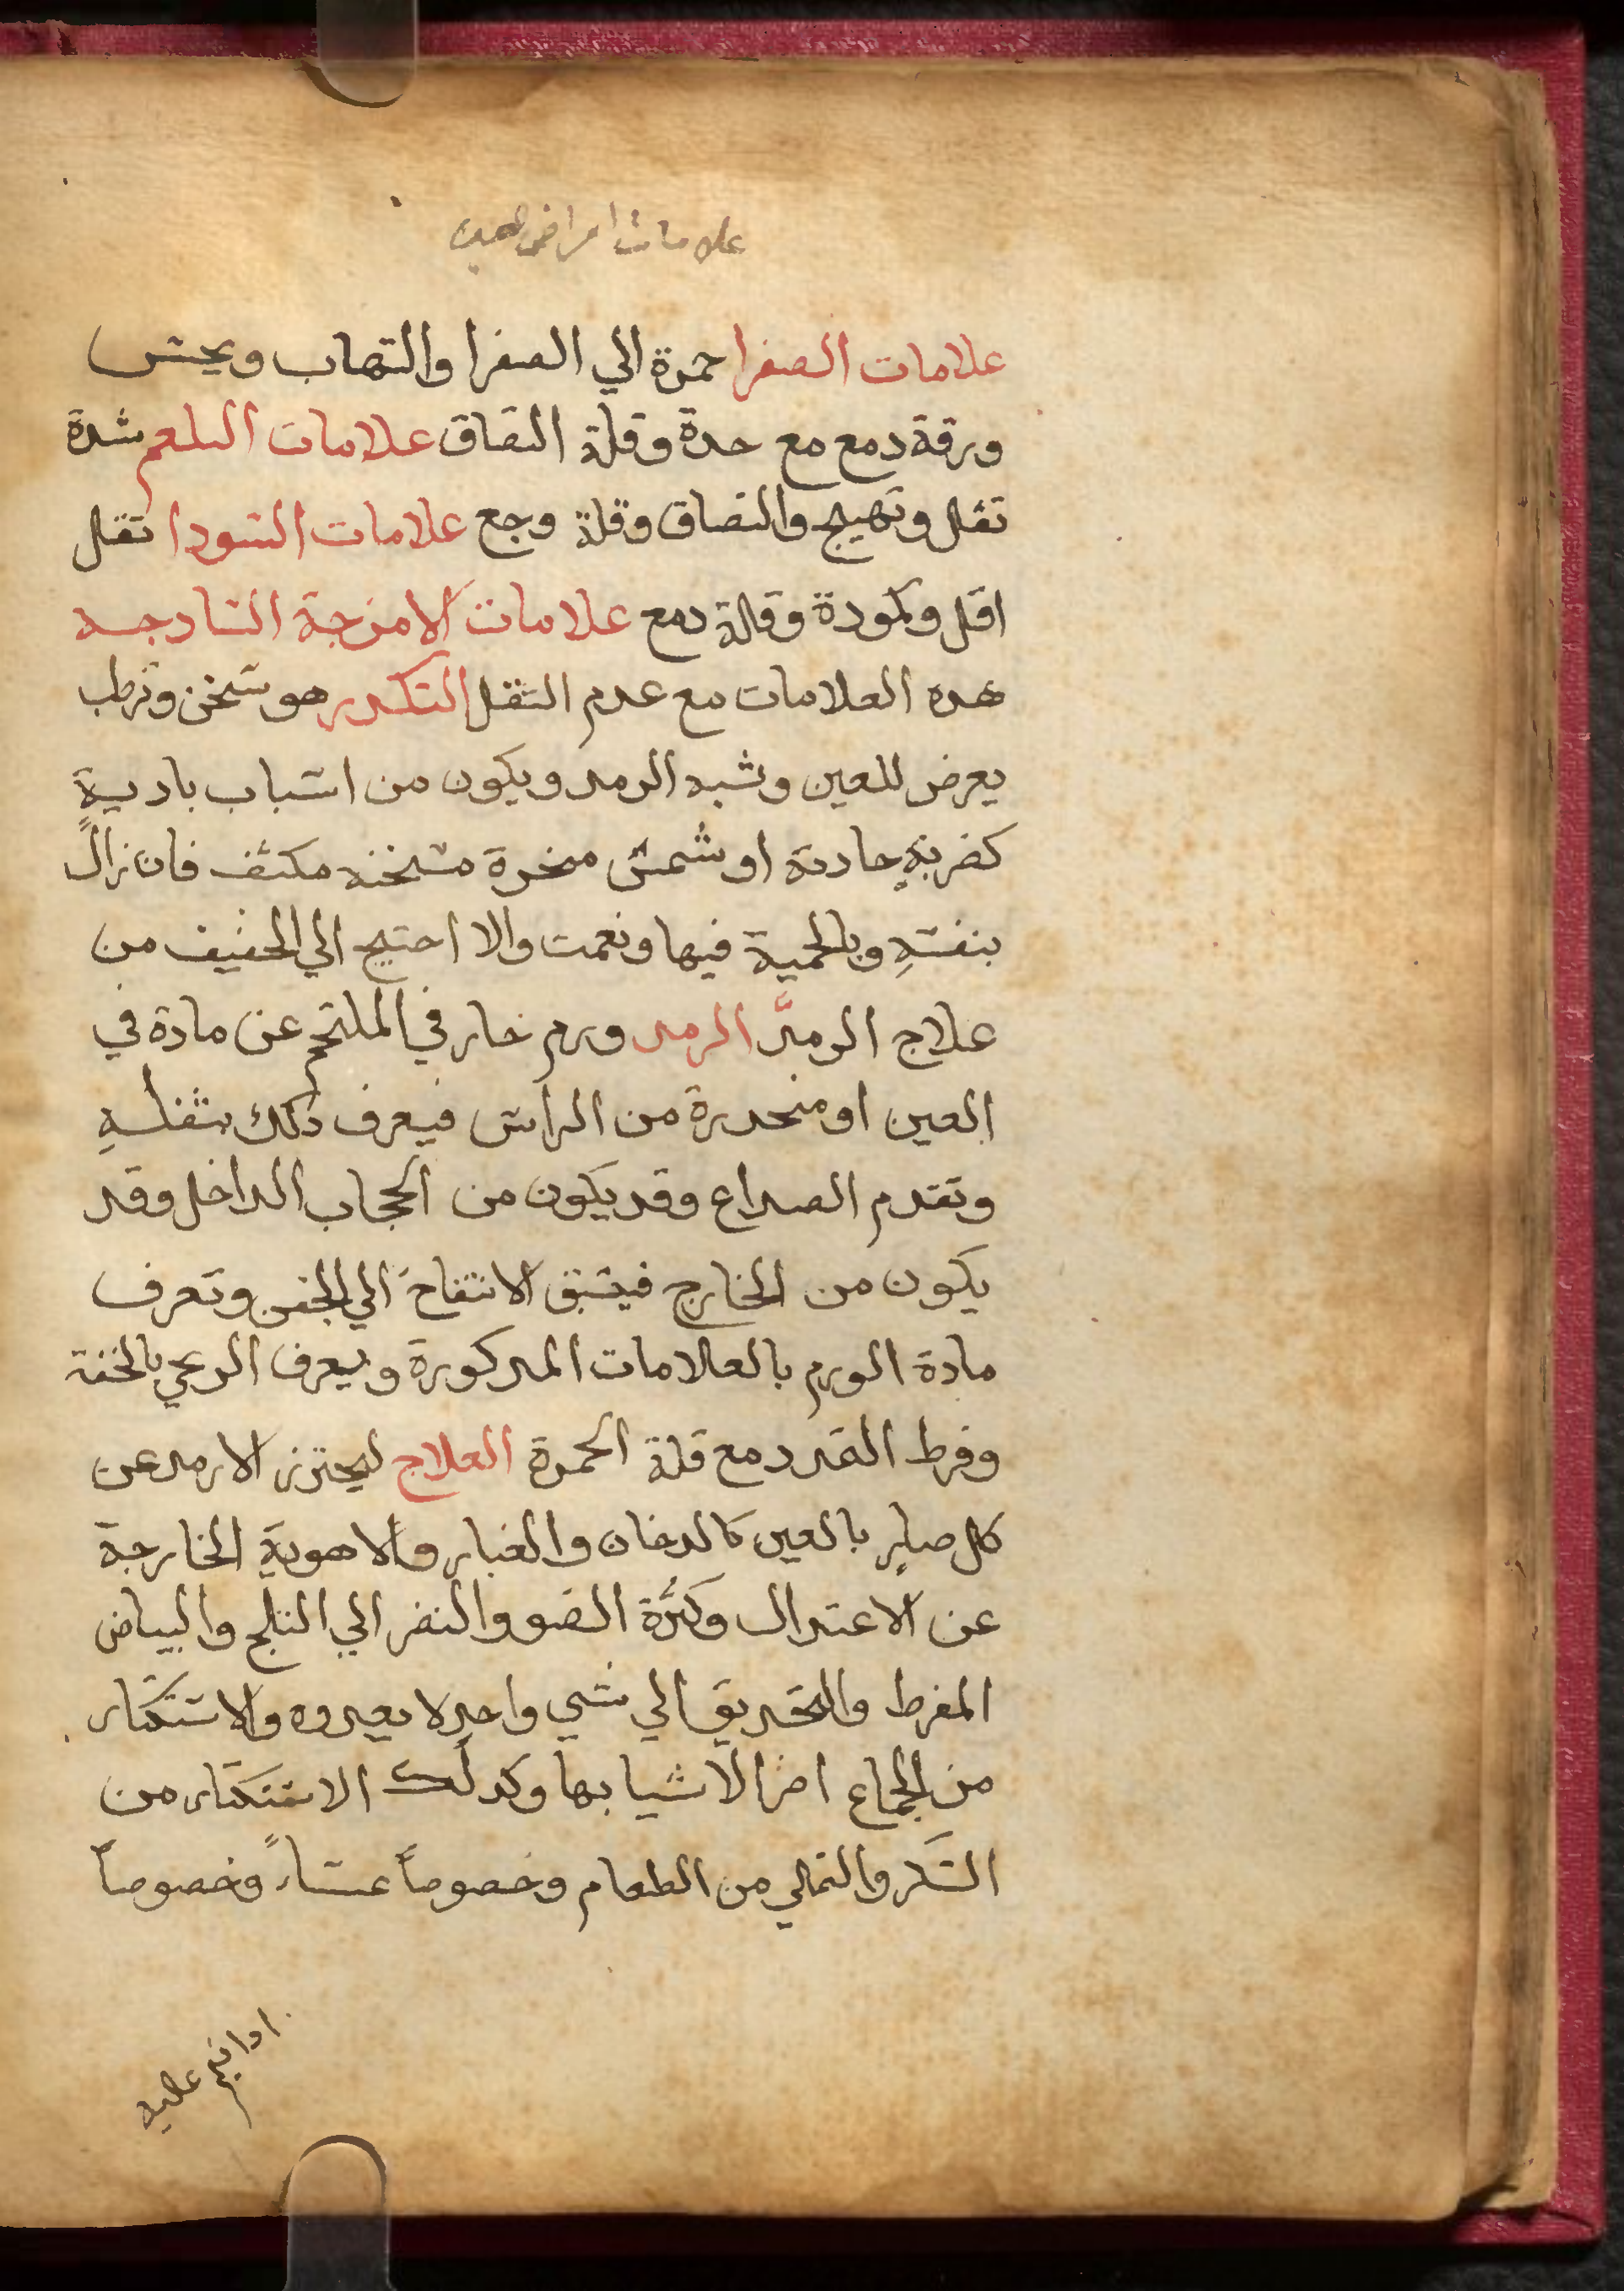 علامات امراض العين
علامات الصفرا حمرة الي الصفرا والتهاب ويحس
ورقة دمع مع حدة وقلة التصاق علامات البلغم شدة
ثقل وتهيج والتصاق وقلة وجع علامات السودا ثقل
اقل وكمودة وقلة دمع علامات الامزجة السادجه
هده العلامات مع عدم الثقل التكدر هو تسخن وترطب
يعرض للعين وشبه الرمد ويكون من اسباب بادية
كضربةٍ حادثة او شمس مخدرة مسخنه مكثف فان زال
بنفسهِ وبالحمية فيها ونعمت والا احتيج الي الخفيف من
علاج الرمد الرمد ورم حار في الملتحم عن مادة في
العين او منحدرة من الراس فيعرف ذلك بثقلهِ
وتقدم الصداع وقد يكون من الحجاب الداخل وقد
يكون من الخارج فيسبق الانتفاخ الي الجفن وتعرف
مادة الورم بالعلامات المدكورة ويعرف الريحي بالخفة
وفرط التمدد مع قلة الحمرة العلاج ليحترز الارمد عن
كل ضاير بالعين كالدخان والغبار والاهوية الخارجة
عن الاعتدال وكثرة الضو والنضر الي الثلج والبياض
المفرط والتحديق الي شي واحد لا يعدوه والاستكثار
من الجماع اضر الاشيا بها وكدلك الاستكثار من
السكر والتملي من الطعام وخصوصاً عشاءً وخصوصاً
ادا نيم عليه